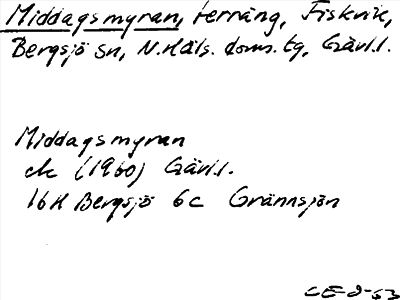 Middagsmyran, terräng, Fiskvik,
Bergsjö sn, N.Häls. doms.tg, Gävl.l.
Middagsmyran
ek (1960) Gävl.l.
16H Bergsjö 6c Grännsjön